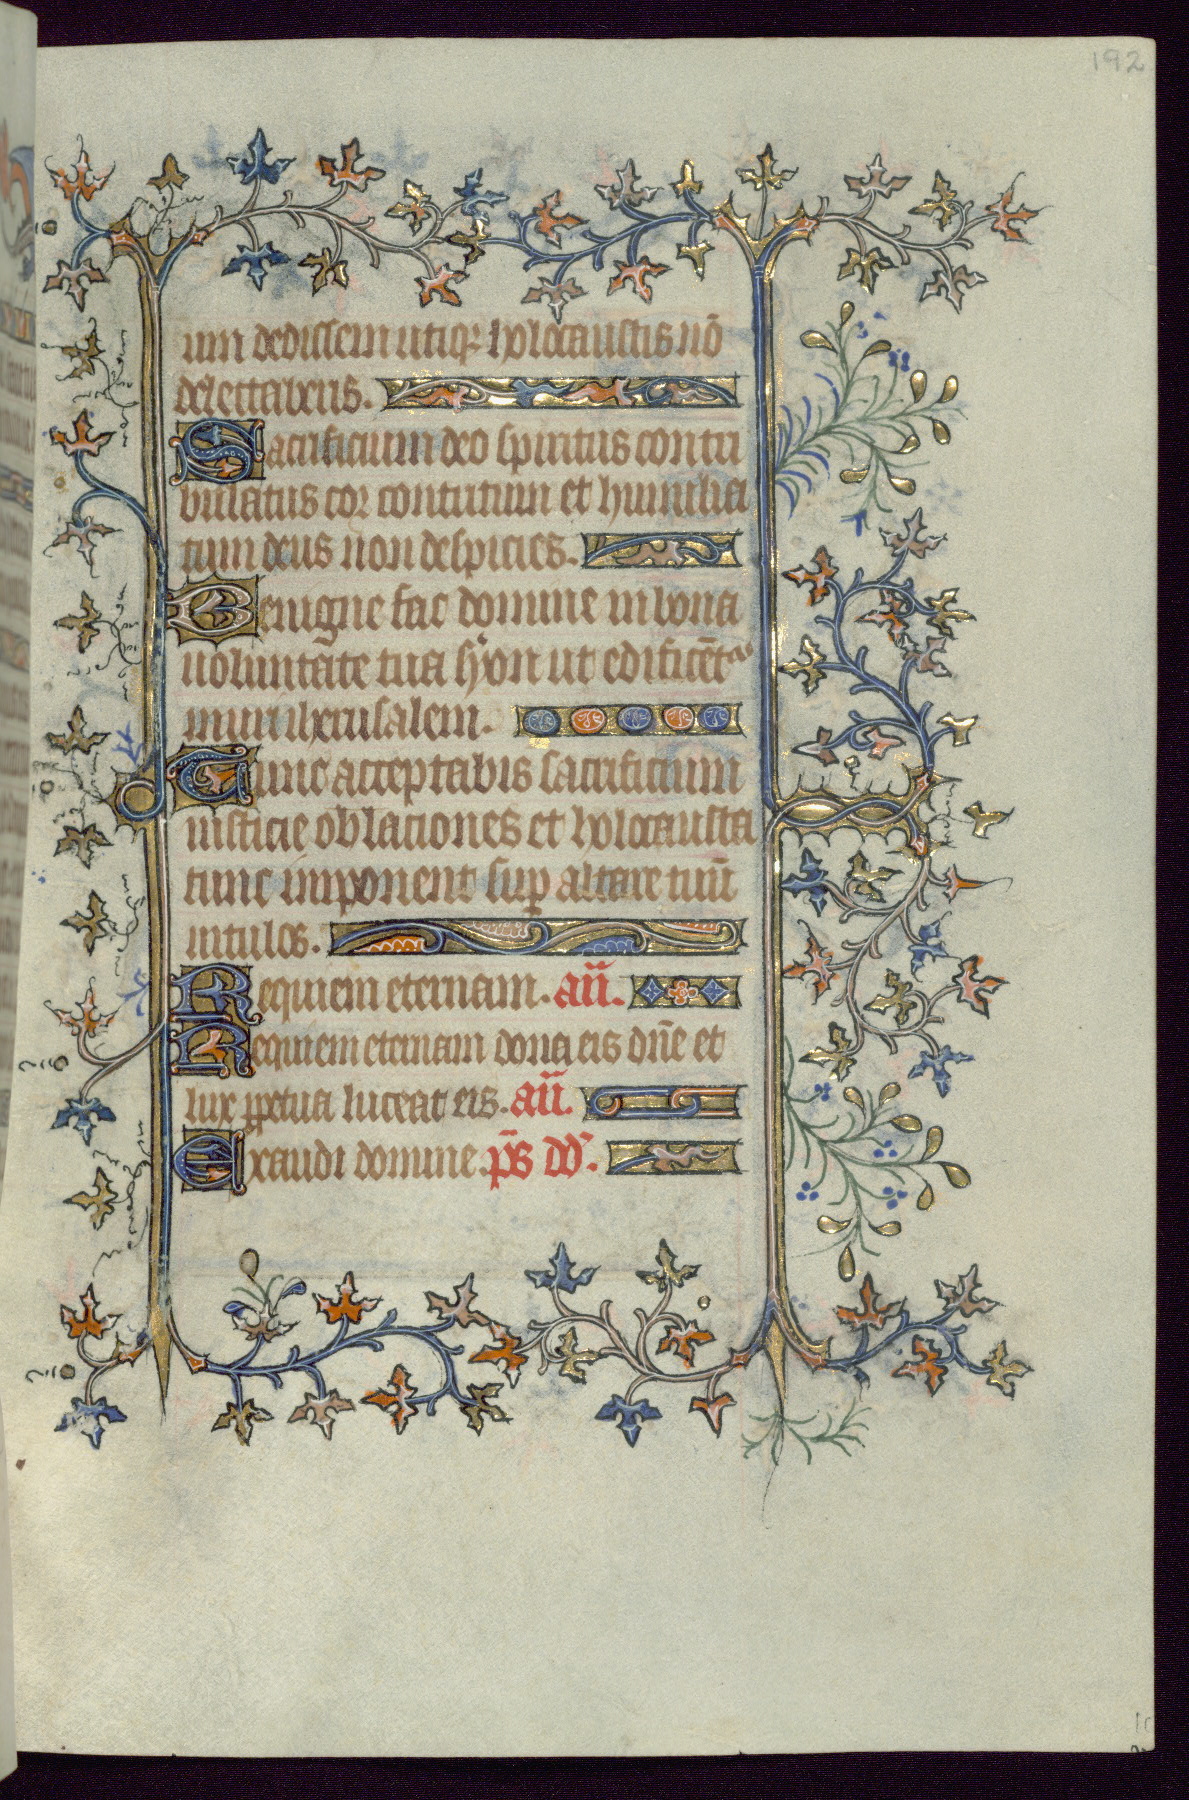 192
um dedissem utiq holocaustis nō
delectaberis.
Sacrificium deo spiritus contri
bulatus cor contritum et humilia
tum deus non despicies.
Benigne fac domine in bona
uoluntate tua syon ut edificēt
muri iherusalem.
Tunc acceptabis sacrificium
iusticie oblationes et holocausta
tunc imponent sup altare tuū
uitulos.
Requiem eternam. añ.
Requiem eternam dona eis dñe et
lux ppetua luceat eis. añ.
Exaudi domine. p̄s dd.